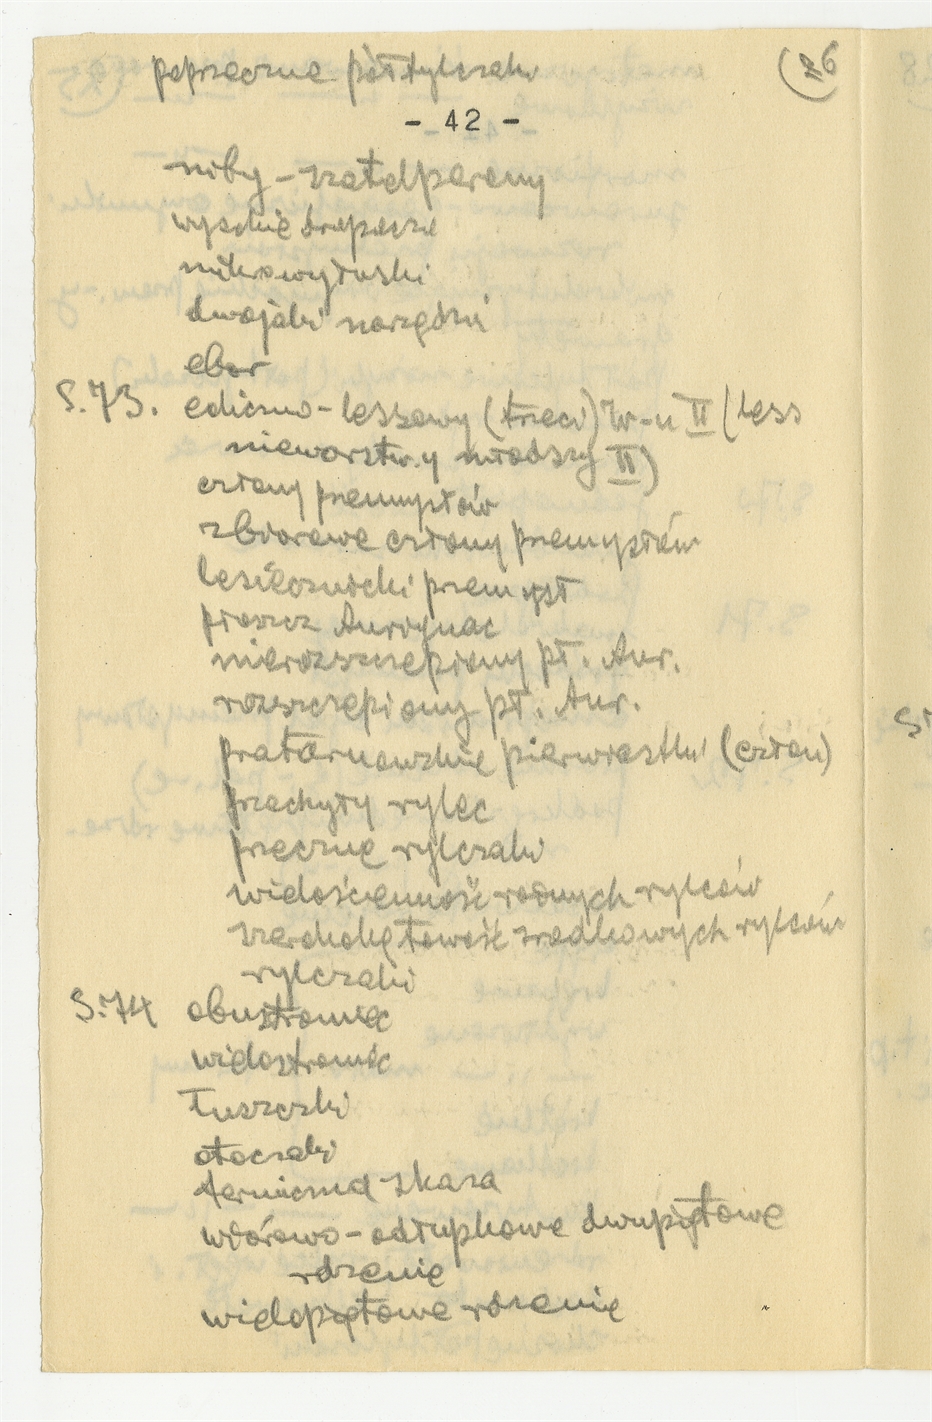 poprzeczne półtylczaki (26
- 42 -
niby-szatelperony
wysokie drapacze
mikrowyłuski
dwojaki narzędzi
ebor
S.73. eoliczno-lessowy (trzeci) W-u II (less
niewarstw.y młodszy II)
człony przemysłów
zbiorowe człony przemysłów
lesiecznicki przemysł
płoszcz Aurignac
nierozszczepiony pł. Aur.
rozszczepiony pł. Aur.
pratarnowskie pierwiastki (człon)
przechyły rylec
przeczne rylczaki
wielościenność rodnych rylców
szerokokątowość środkowych rylców
rylczaki
S.74 obustronnic
wielostronic
łuszczki
otoczaki
termiczna skaza
wiórowo-odłupkowe dwupiętowe
rdzenie
wielopiętowe rdzenie